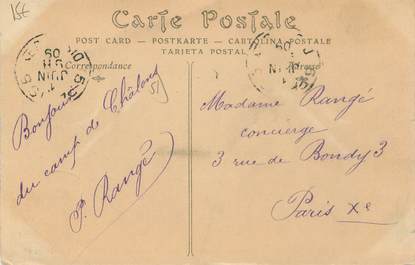 ISE
Carte Postale
POST CARD — POSTKARTE — CARTOLINA POSTALE
TARJETA POSTAL
Correspondance
Adresse
Bonjour
du camp de Chalons
P. Rangé
51
Madame Rangé
concierge
3 rue de Bondy 3
Paris Xe